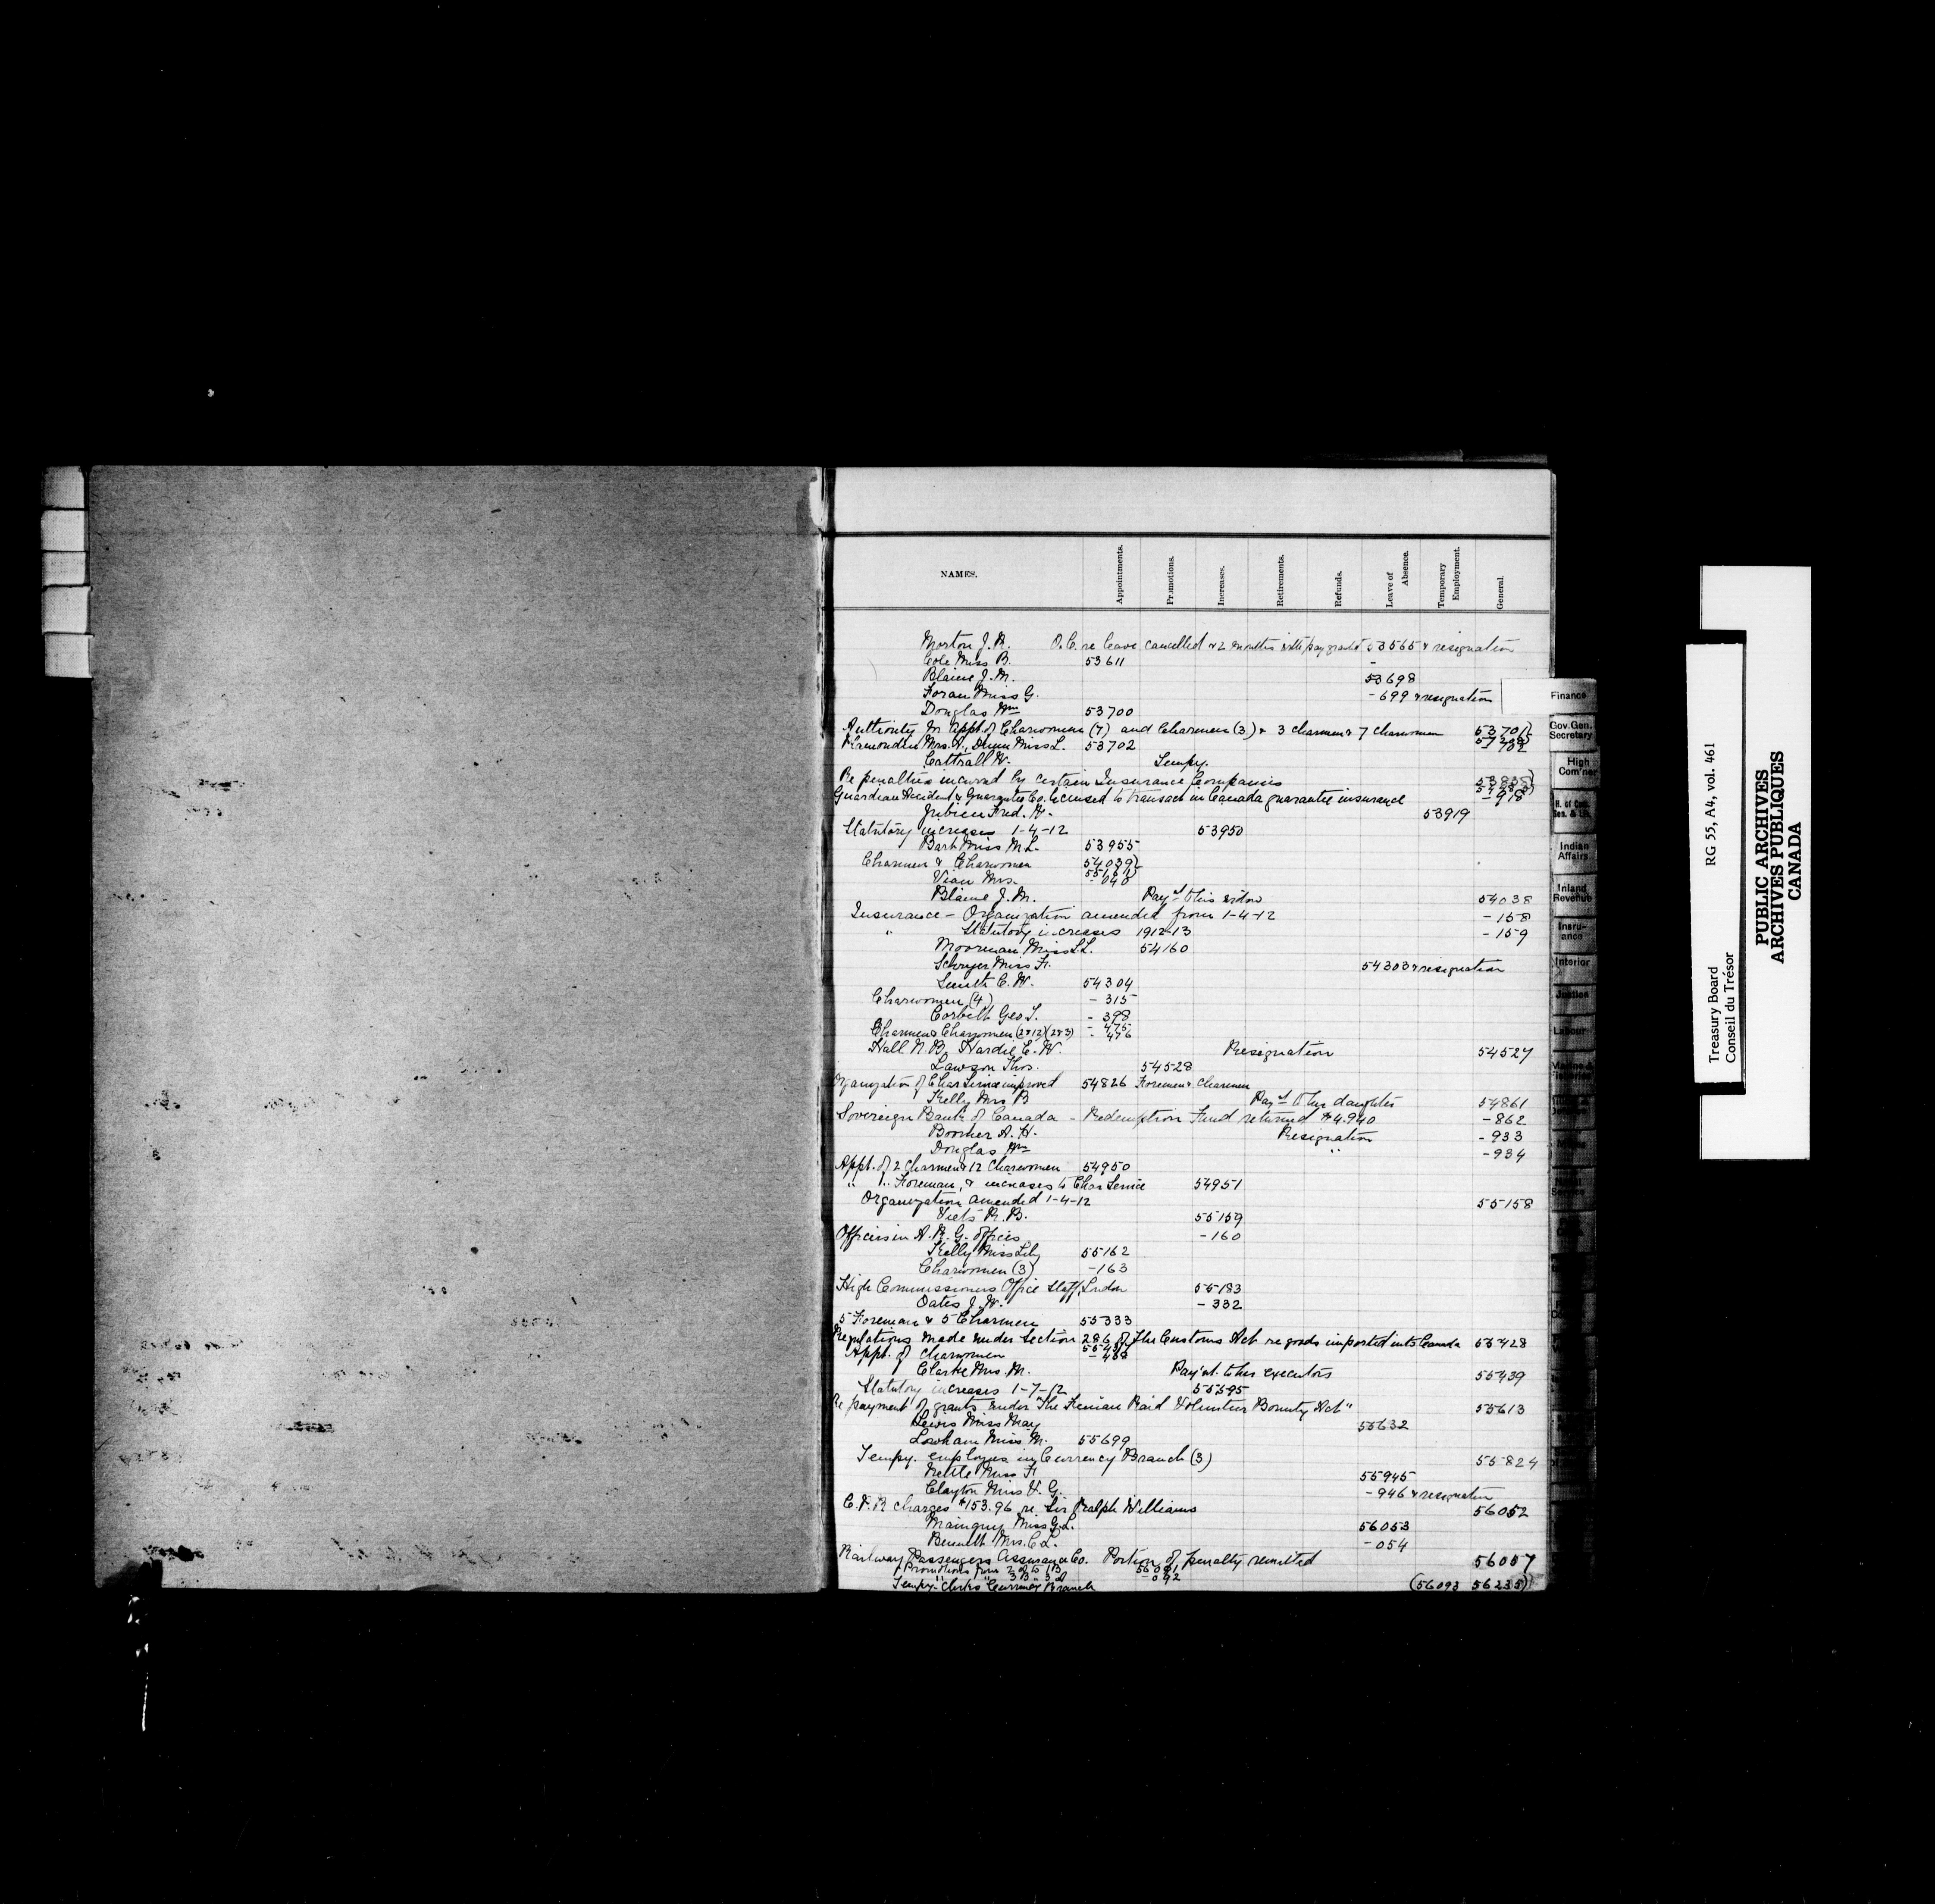 NAMES. Appointments. Promotions. Increases. Retirements. Refunds. Leave of Absence. Temporary Employment. General.
Morton J. R. O.C. re leave cancelled & 2 months with pay granted 53565 & resignation
Cole Miss B. 53611
Blaine J. M. 53698
Foran Miss G. - 699 & resignation
Douglas Wm 53700
Authority for appt. of Charwomen (7) and Charmen (3) & 3 charmen & 7 charwomen 53701
Mrs. A., Dunn Miss L. 53702
Cattrall W. Tempy. - 732
Re penalties incurred by certain Insurance Companies
Guardian Accident & Guarantee Co. licensed to transact in Canada guarantee insurance - 918
Jubien Fred. W. 53919
Statutory increases 1-4-12 53950
Bark Miss M. L. 53955
Charmen & Charwomen 54039
Vian Mrs. - 040
Blaine J. M. Pay't to his widow 54038
Insurance - Organization amended from 1-4-12 - 158
" Statutory increases 1912-13 - 159
Moorman Miss L. L. 54160
Schryer Miss F. 54303 & resignation
Smith C. W. 54304
Charwomen (4) - 315
Corbett Geo. T. - 398
Charmen & Charwomen (2 & 12) (2 & 3) - 475 - 476
Hall N. B., Hardie E. W. Resignation 54527
Lawson Thos. 54528
Organization of Char Service improved 54826 Foremen & Charmen
Kelly Mrs B Pay't to her daughter 54861
Sovereign Bank of Canada - Redemption Fund returned $4.940 - 862
Boomer A. H. Resignation - 933
Douglas Wm " - 934
Appt. of 2 charmen & 12 charwomen 54950
" " Foreman, & increases to Char Service 54951
Organization amended 1-4-12 55158
Viets R. B. 55159
Officers in A. R. G. offices - 160
Kelly Miss Lily 55162
Charwomen (3) - 163
High Commissioners Office Staff, London 55183
Oates J. W. - 332
5 Foreman & 5 Charmen 55333
Regulations made under Section 286 of The Customs Act re goods imported into Canada 55428
Appt. of charwomen 55437 - 438
Clarke Mrs. M. Pay't. to her executors 55439
Statutory increases 1-7-12 55595
Re payment of grants under "The Fenian Raid Volunteer Bounty Act" 55613
Lewis Miss May 55632
Lowham Miss M. 55699
Tempy. employees in Currency Branch (3) 55824
Nettle Miss F. 55945
Clayton Miss V. G. - 946 & resignation
C.P.R charges $153.96 re. Sir Ralph Williams 56052
Mainguy Miss G. L. 56053
Bennett Mrs. C. L. - 054
Railway Passengers Assurance Co. Portion of penalty remitted 56057
Promotions from 2 A to 1 B 56091
" " 3 B " 3 A - 092
Tempy. Clerks Currency Branch (56093 56235)
Finance
Gov. Gen. Secretary
High Com'ner
H. of Com. Sen. & Lib.
Indian Affairs
Inland Revenue
Insurance
Interior
Justice
Labour
Treasury Board RG 55, A4, vol. 461
Conseil du Trésor
PUBLIC ARCHIVES
ARCHIVES PUBLIQUES
CANADA